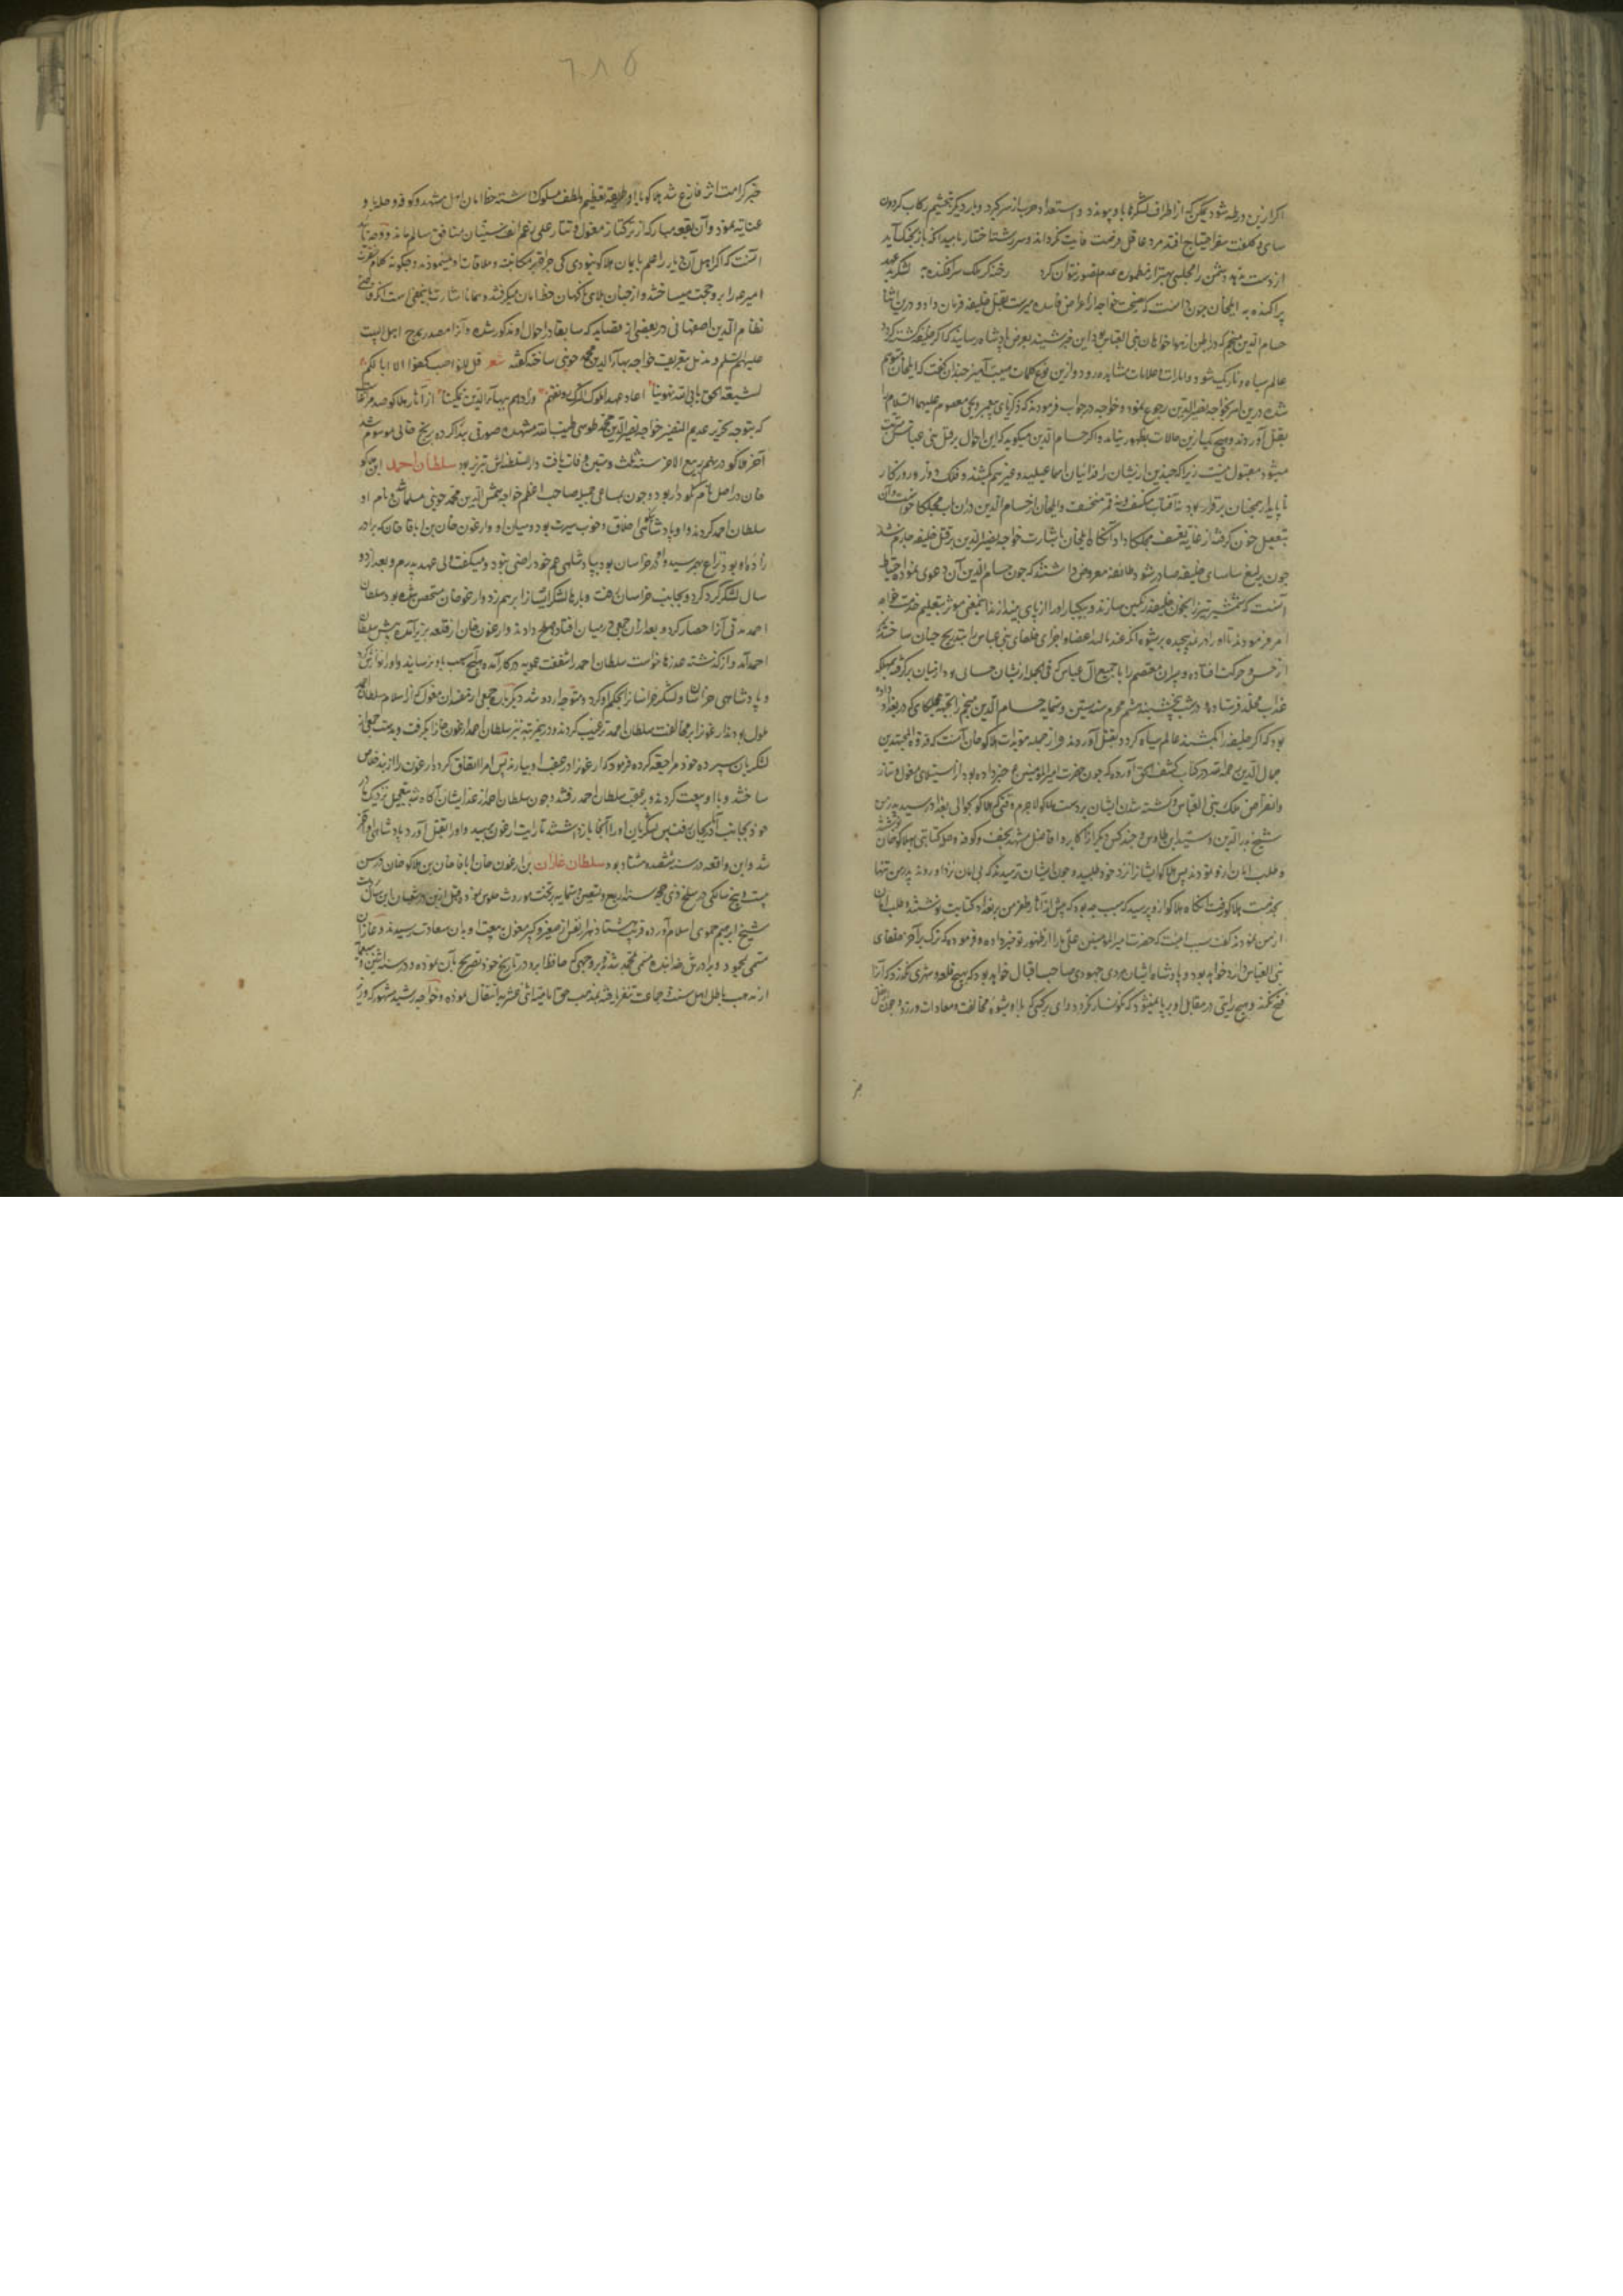 اکر ازین ورطه شود ممکن که از اطراف لشکرها باو پیوندد و استعداد حرب از سر کیرد و بار دیکر بتجشیم رکاب کردون
سای و کلفت سفر احتیاج افتد مرد عاقل فرصت فایت نکرداند و سر رشته اختیار بامید آنکه باز بچنک آید
از دست ندهد دشمن را مجلسی بهتر از مطموره عدم تصور نتوان کرد
پراکنده به ایلخان چون دانست که نصیحت خواجه از اغراض فاسده مبراست بقتل خلیفه فرمان داد و درین اثنا
حسام الدین منجم که در باطن از هواخواهان بنی العباس بود این خبر شنید بعرض پادشاه رسانید که اکر خلیفه کشته کردد
عالم سیاه و تاریک شود و امارات و علامات مشاهده رود و ازین نوع کلمات مهیب آمیز چندان کفت که ایلخان متوهم
شده درین امر بخواجه نصیر الدین رجوع نمود و خواجه در جواب فرمودند که زکریای پیغمبر و یحیی معصوم علیهما السلام را
بقتل آوردند و هیچ یک ازین حالات بظهور نیامد و اکر حسام الدین میکوید که این احوال بر قتل بنی عباس مترتب
میشود مقبول نیست زیرا که چندین از ایشان را فدائیان اسماعیلیه و غیرهم بکشتند و فلک دوار و روزکار
ناپایدار همچنان برقرار بود نه آفتاب منکسف و نه قمر منخسف و ایلخان از حسام الدین دران باب مچلکا خواست
چون یرلیغ سیاسای خلیفه صادر شود طائفه معروض داشتند که چون حسام الدین آن دعوی نموده احتیاط
آنست که شمشیر تیز را بخون خلیفه رنکین نسازند
امر فرمودند تا او را در نمد پیچیده
از حس و حرکت افتاده و پسران معتصم را با جمیع آل عباس
عذاب مخلد فرستادند
بود که اکر خلیفه را بکشند عالم سیاه کردد بقتل آوردند و از جمله مؤیدات هلاکو خان آنست که قدوة المجتهدین
جمال الدین علامه در کتاب کشف الحق آورده که چون حضرت امیر المؤمنین ع خبر داده بود از استیلای مغول و تتار
و انقراض ملک بنی العباس و کشته شدن ایشان بر دست هلاکو لاجرم وقتی که هلاکو بحوالی بغداد رسید پدرش
شیخ سدید الدین و سید ابن طاوس و چند کس دیکر از اکابر و افاضل مشهد نجف و کوفه و حله کتابتی بهلاکو خان
و طلب امان ازو نمودند پس هلاکو ایشانرا نزد خود طلبید و چون ایشان ترسیدند که بی امان نزد او روند پدر من تنها
بخدمت هلاکو رفت آنکاه هلاکو ازو پرسید که سبب چه بود که پیش از آثار ظفر من بر بغداد کتابت نوشتند و طلب امان
از من نمودند کفت سبب اینست که حضرت امیر المؤمنین علی ما را از ظهور تو خبر داده و فرموده که ترک بر آخر خلفای
بنی العباس وارد خواهد بود و پادشاه ایشان مردی جهوری صاحب اقبال خواهد بود که بهیچ قلعه و شهری نکذرد که آنرا
فتح نکند و هیچ رایتی در مقابل او بر پا نمیشود که نکونسار نکردد و وای بر کسی که با او بشیوه مخالفت و معادات ورزد و چون
خبر کرامت اثر فارغ شد هلاکو با او طریقه تعظیم و لطف مسلوک داشته خط امان اهل مشهد و کوفه و حله باو
عنایت نمود و آن بقعه مبارکه از ترکتاز مغول و تتار علی رغم انف سنیان منافق سالم ماند
آنست که اکر اهل آن دیار را علم بایمان هلاکو نبودی کی جرأت بر مکاتبه و ملاقات او مینمودند و چکونه کلام حضرت
امیر ع را برو حجت میساختند و از چنان بلای ناکهان خط امان میکرفتند و همانا اشارت بهمین معنی است آنکه قاضی
نظام الدین اصفهانی در بعضی از قصاید که سابقا در احوال او مذکور شده و آنرا مصدر بمدح اهل البیت
علیهم السلام و مذیل بتعریف خواجه بهاء الدین محمد جوینی ساخته کفته شعر قل للنواصب کفوا لا ابا لکم
لشیعة الحق یابی الله توهینا اعاد عهد ملوک الترک رونقهم وزادهم ببهاء الدین تمکینا از آثار هلاکو رصد مراغه است
که بتوجه تحریر عدیم النظیر خواجه نصیر الدین محمد طوسی طیب الله مشهده صورتی پیدا کرده بزیج خانی موسوم شد
آخر هلاکو در نهم ربیع الاخر سنه ثلث و ستین وفات یافت دار السلطنه اش تبریز بود سلطان احمد ابن هلاکو
خان در اصل نام نکودار بود و چون بمساعی جمیله صاحب اعظم خواجه شمس الدین محمد جوینی مسلمان شد نام او
سلطان احمد کردند و او پادشاه نیکو اخلاق و خوب سیرت بود و میان او و ارغون خان بن اباقا خان که برادر
زاده او بود نزاع بهم رسید و او در خراسان بود بپادشاهی عم خود راضی نبود و میکفت ولی عهد پدرم و بعد از دو
سال لشکر کرد کرد و بجانب خراسان رفت و بارها لشکر ایشانرا برهم زد و ارغون خان متحصن شده بود سلطان
احمد مدتی آنرا حصار کرد و بعد ازان جمعی در میان افتاده صلح دادند و ارغون خان از قلعه بزیر آمده پیش سلطان
احمد آمد و از کذشته عذرها خواست سلطان احمد را شفقت عمویه در کار آمده هیچ آسیب باو نرسانید و او را نوازش کرد
و پادشاهی خراسان و لشکر خراسانرا بحکم او کرد و متوجه اردو شد
ملول بودند ارغونرا بر مخالفت سلطان احمد ترغیب کردند و درین مرتبه نیز سلطان احمد ارغون خانرا بکرفت و بدست جمعی از
لشکریان سپرده خود مراجعت کرده فرمود که ارغونرا در عقب او بیارند پس امرا اتفاق کرده ارغون را از بند خلاص
ساختند و با او بیعت کردند و بر عقب سلطان احمد رفتند و چون سلطان احمد از غدر ایشان آکاه شد بتعجیل نزدیک مادر
خود بجانب آذربایجان رفت پس لشکریان او را آنجا باز داشتند تا رایت ارغون برسید و او را بقتل آورد
شد و این واقعه در سنه ششصد و هشتاد بود سلطان غازان بن ارغون خان بن اباقا خان بن هلاکو خان در سن
بیست و پنج سالکی در سلخ ذی حجه سنه اربع و تسعین و ستمایه بر تخت موروث جلوس نمود و قبل ازین در شعبان این سال بدست
شیخ ابرهیم حموی اسلام آورده قریب هشتاد هزار نفر از صغیر و کبیر مغول بتبعیت او بآن سعادت رسیدند و غازان
مسمی بمحمود و برادرش خدابنده مسمی بمحمد شد و بر وجهی که حافظ ابرو در تاریخ خود تصریح بآن نموده در سنه اثنین و سبعمایه
از مذهب باطل اهل سنت و جماعت تنفر یافته بمذهب حق امامیه اثنی عشریه انتقال نموده و خواجه رشید مشهور که وزیر